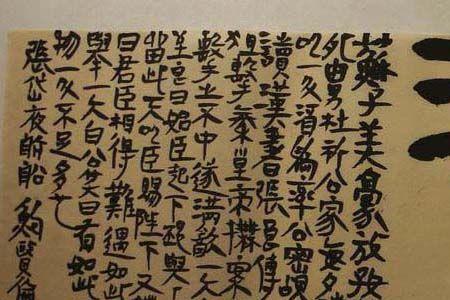 蘇子美豪放好
舅杜祁公家每夕
一斗酒為率公密覘
讀漢書張良傳
狙擊秦皇帝撫案
擊之不中遂滿飲一大
至良曰始臣起下邳與上
留此天以臣賜陛下又
曰君臣相得難遇如此
舉一大白公笑曰有如此
物一斗不足多也
張岱夜航船